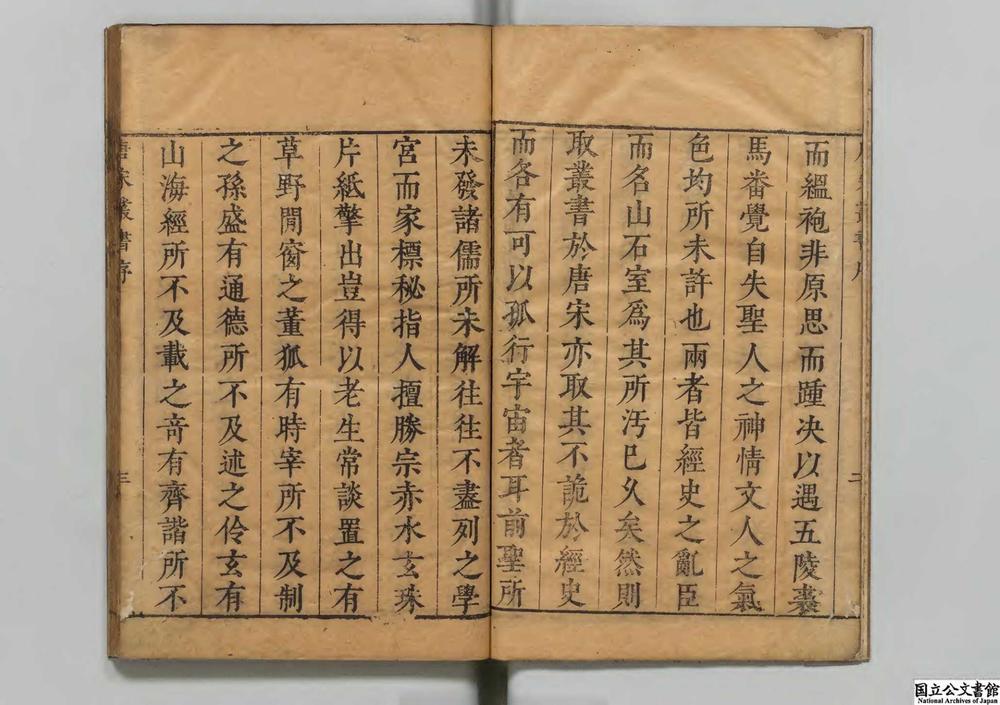 而縕袍非原思而踵决以遇五陵裘
馬畨覺自失聖人之神情文人之氣
色均所未許也兩者皆經史之亂臣
而名山石室爲其所汚已久矣然則
取叢書於唐宋亦取其不詭於經史
而各有可以孤行宇宙者耳前聖所
未發諸儒所未解往往不盡列之學
宮而家標秘指人擅勝宗赤水玄珠
片紙擎出豈得以老生常談置之有
草野閒窗之董狐有時宰所不及制
之孫盛有通德所不及述之伶玄有
山海經所不及載之奇有齊諧所不
叢書序
三
国立公文書館
National Archives of Japan